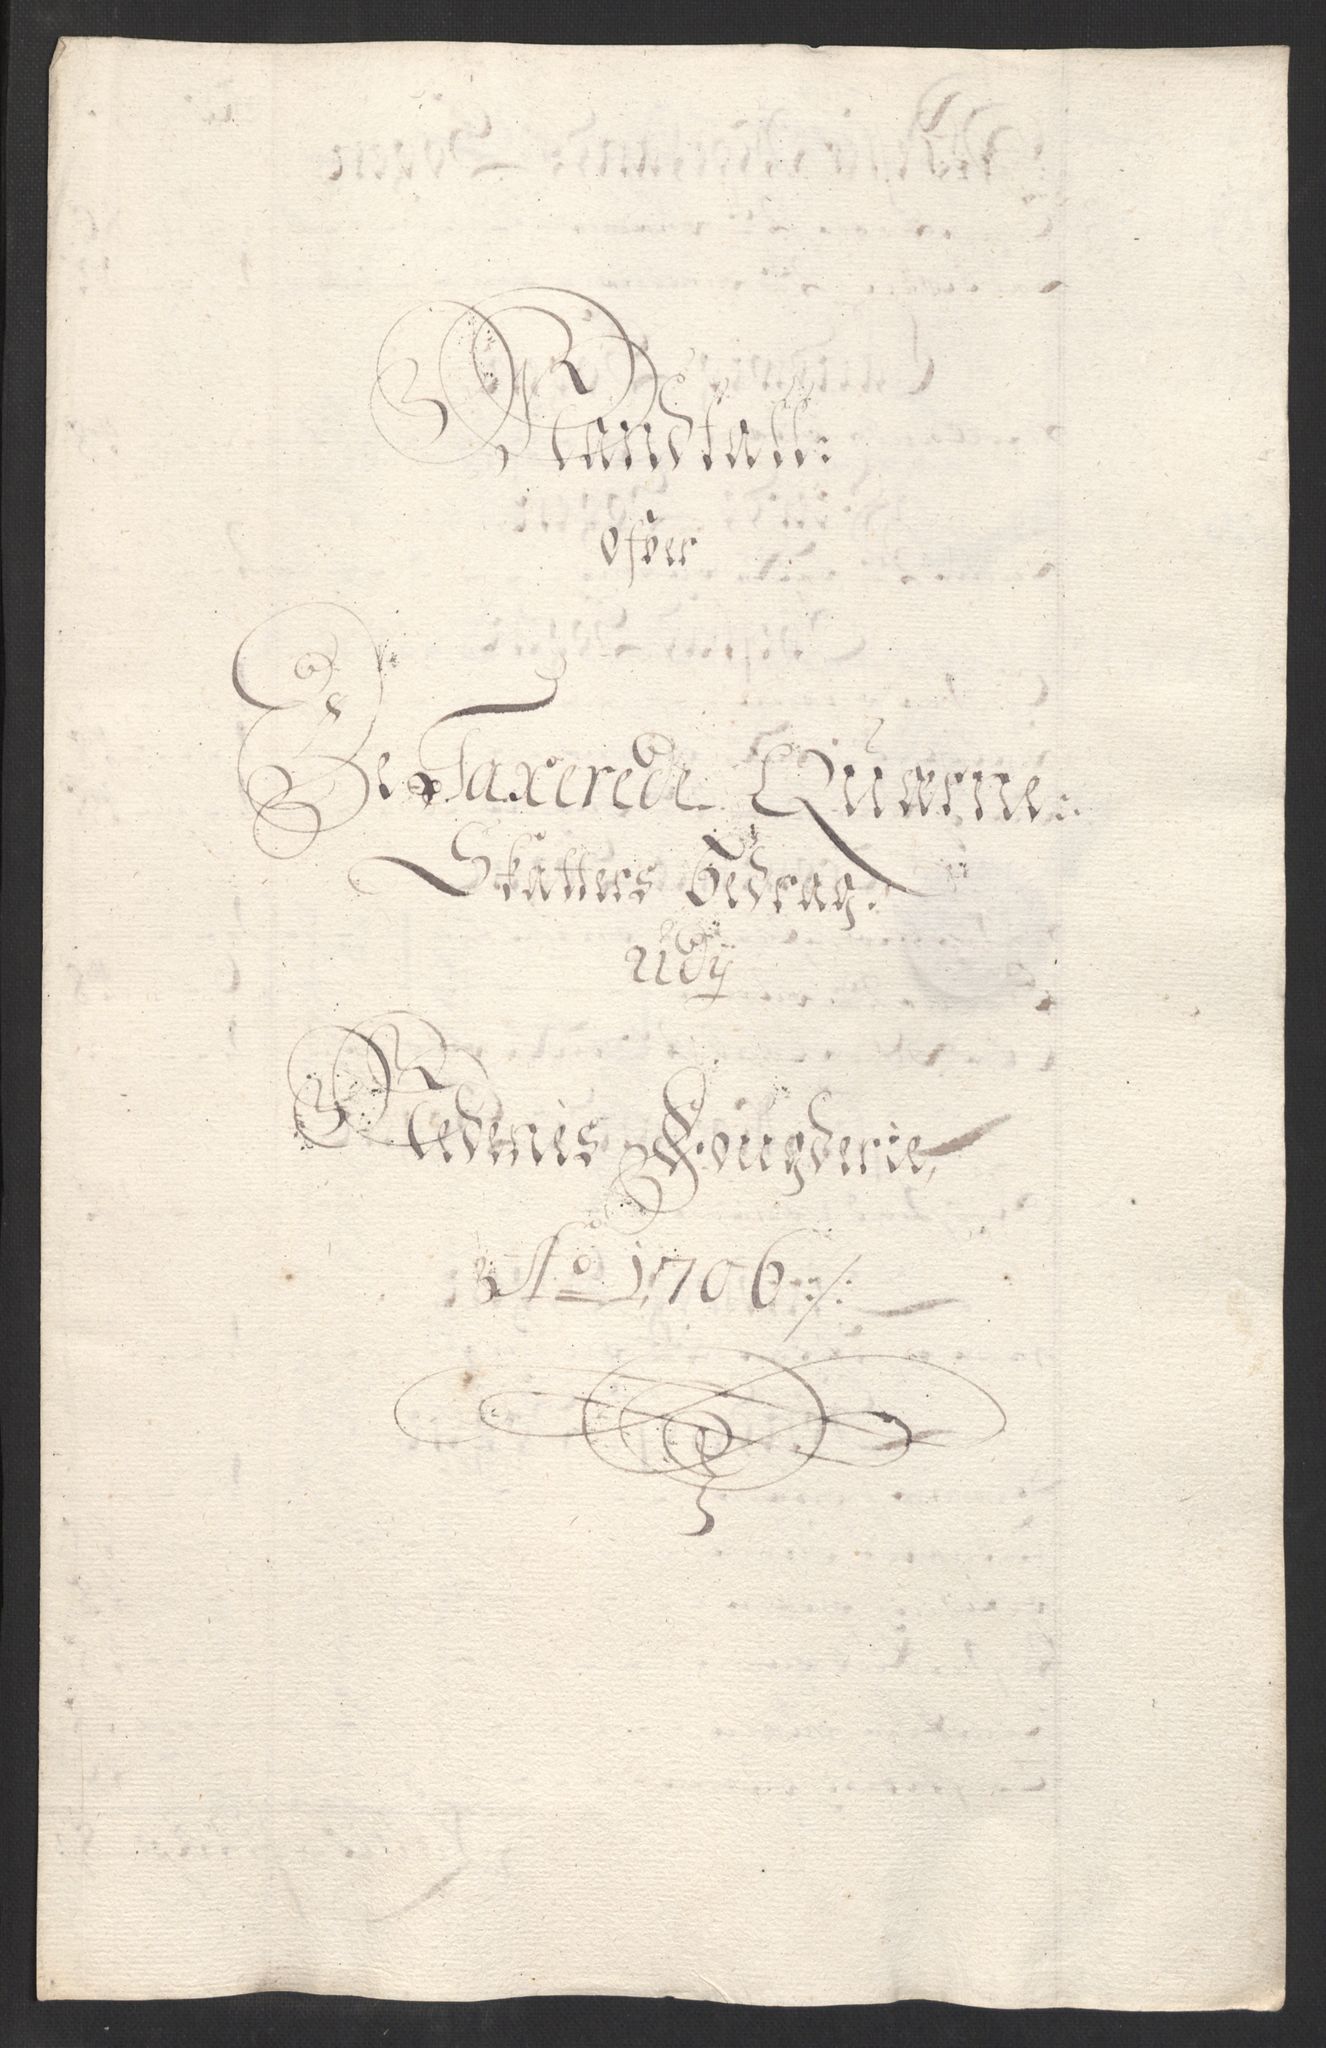 Mandtall
ofver
De Taxerede Quærne
Skatters bedrag
udj
Nedenis Fougderie,
Ao 1706 ∙/∙